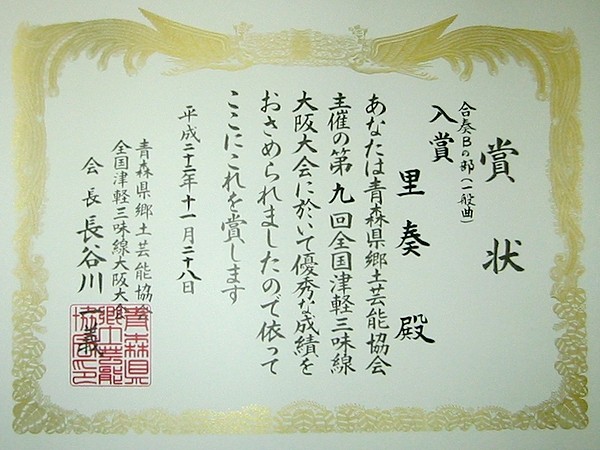 賞状
合奏Bの部(一般曲)
入賞
里奏殿
あなたは青森県郷土芸能協会
主催の第九回全国津軽三味線
大阪大会に於いて優秀な成績を
おさめられましたので依って
ここにこれを賞します
平成二十三年十一月二十八日
青森県郷土芸能協会
全国津軽三味線大阪大会
会長長谷川一義
青森県
郷土芸能
協會印